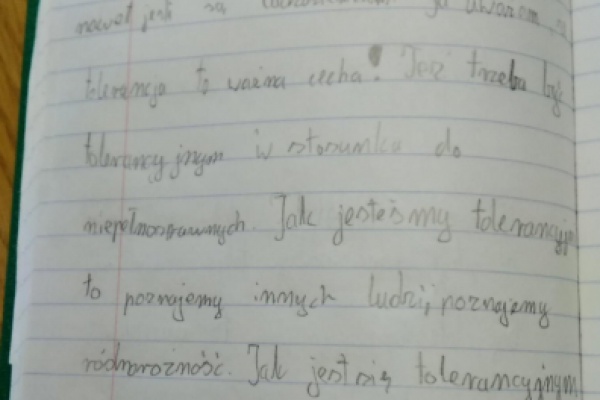 nawet jeśli są Ja uważam,
tolerancja to ważna cecha. Też trzeba być
tolerancyjnym w stosunku do
niepełnosrawnych. Jak jesteśmy tolerancyjni
to poznajemy innych ludzi, poznajemy
ródnorożność. Jak jest się tolerancyjnym